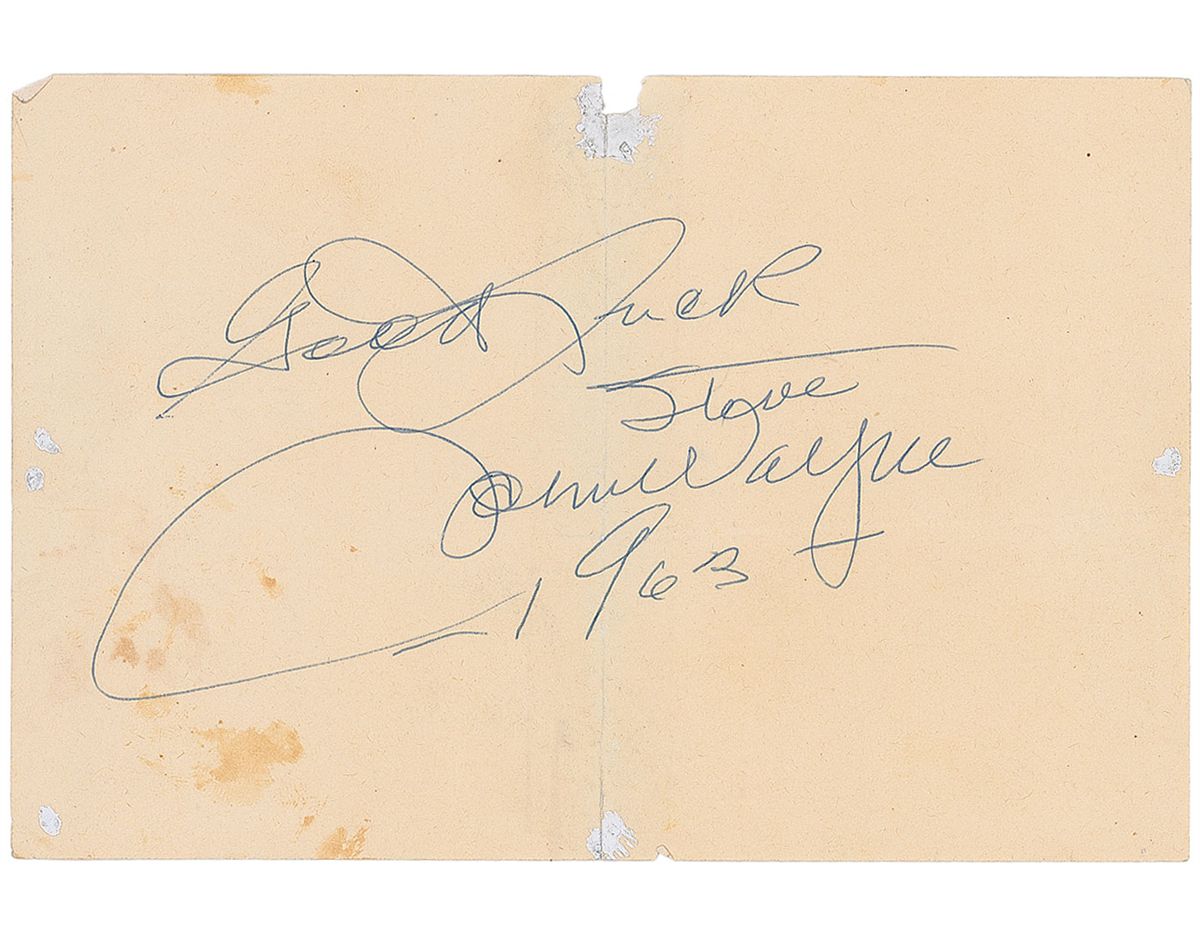 Good Luck
Steve
John Wayne
1963